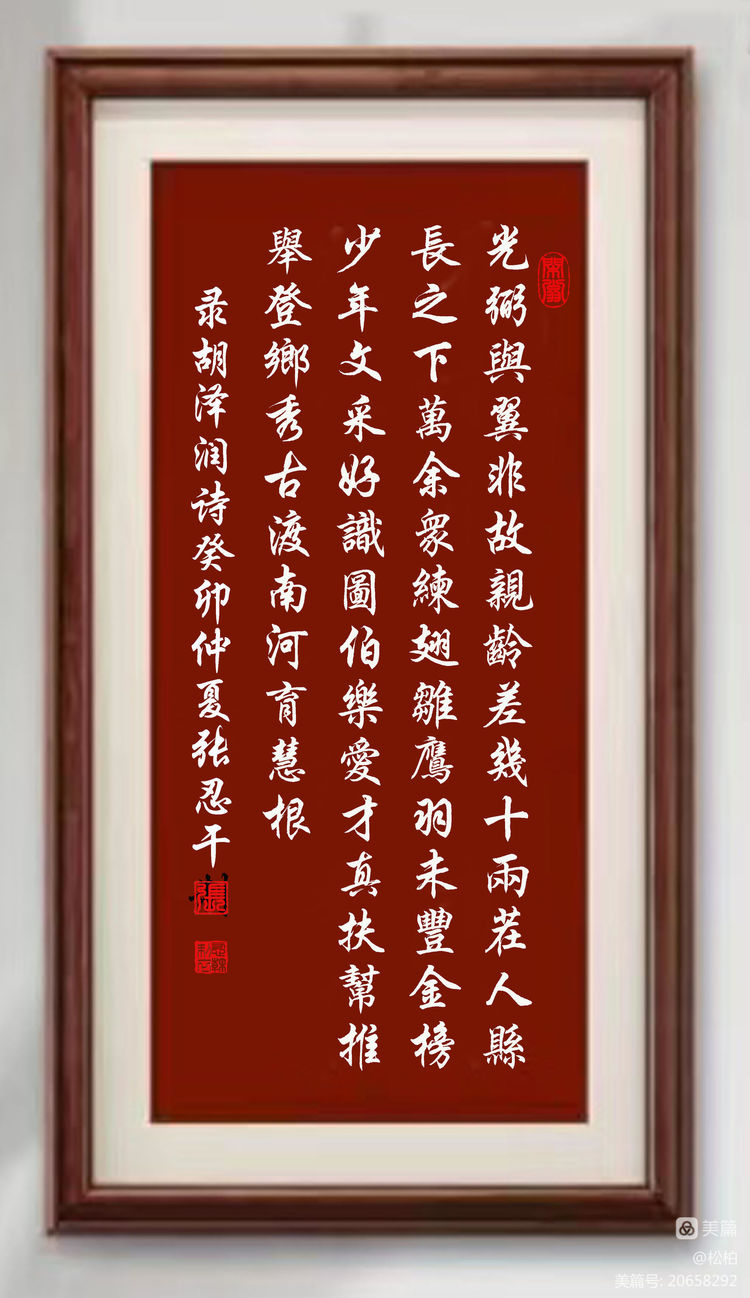 光弼與翼非故親齡差幾十兩茬人縣
長之下萬余衆練翅雛鷹羽未豐金榜
少年文采好識圖伯樂愛才真扶幫推
舉登鄉秀古渡南河育慧根
录胡泽润诗癸卯仲夏张忍干
美篇
@松柏
美篇号: 20658292